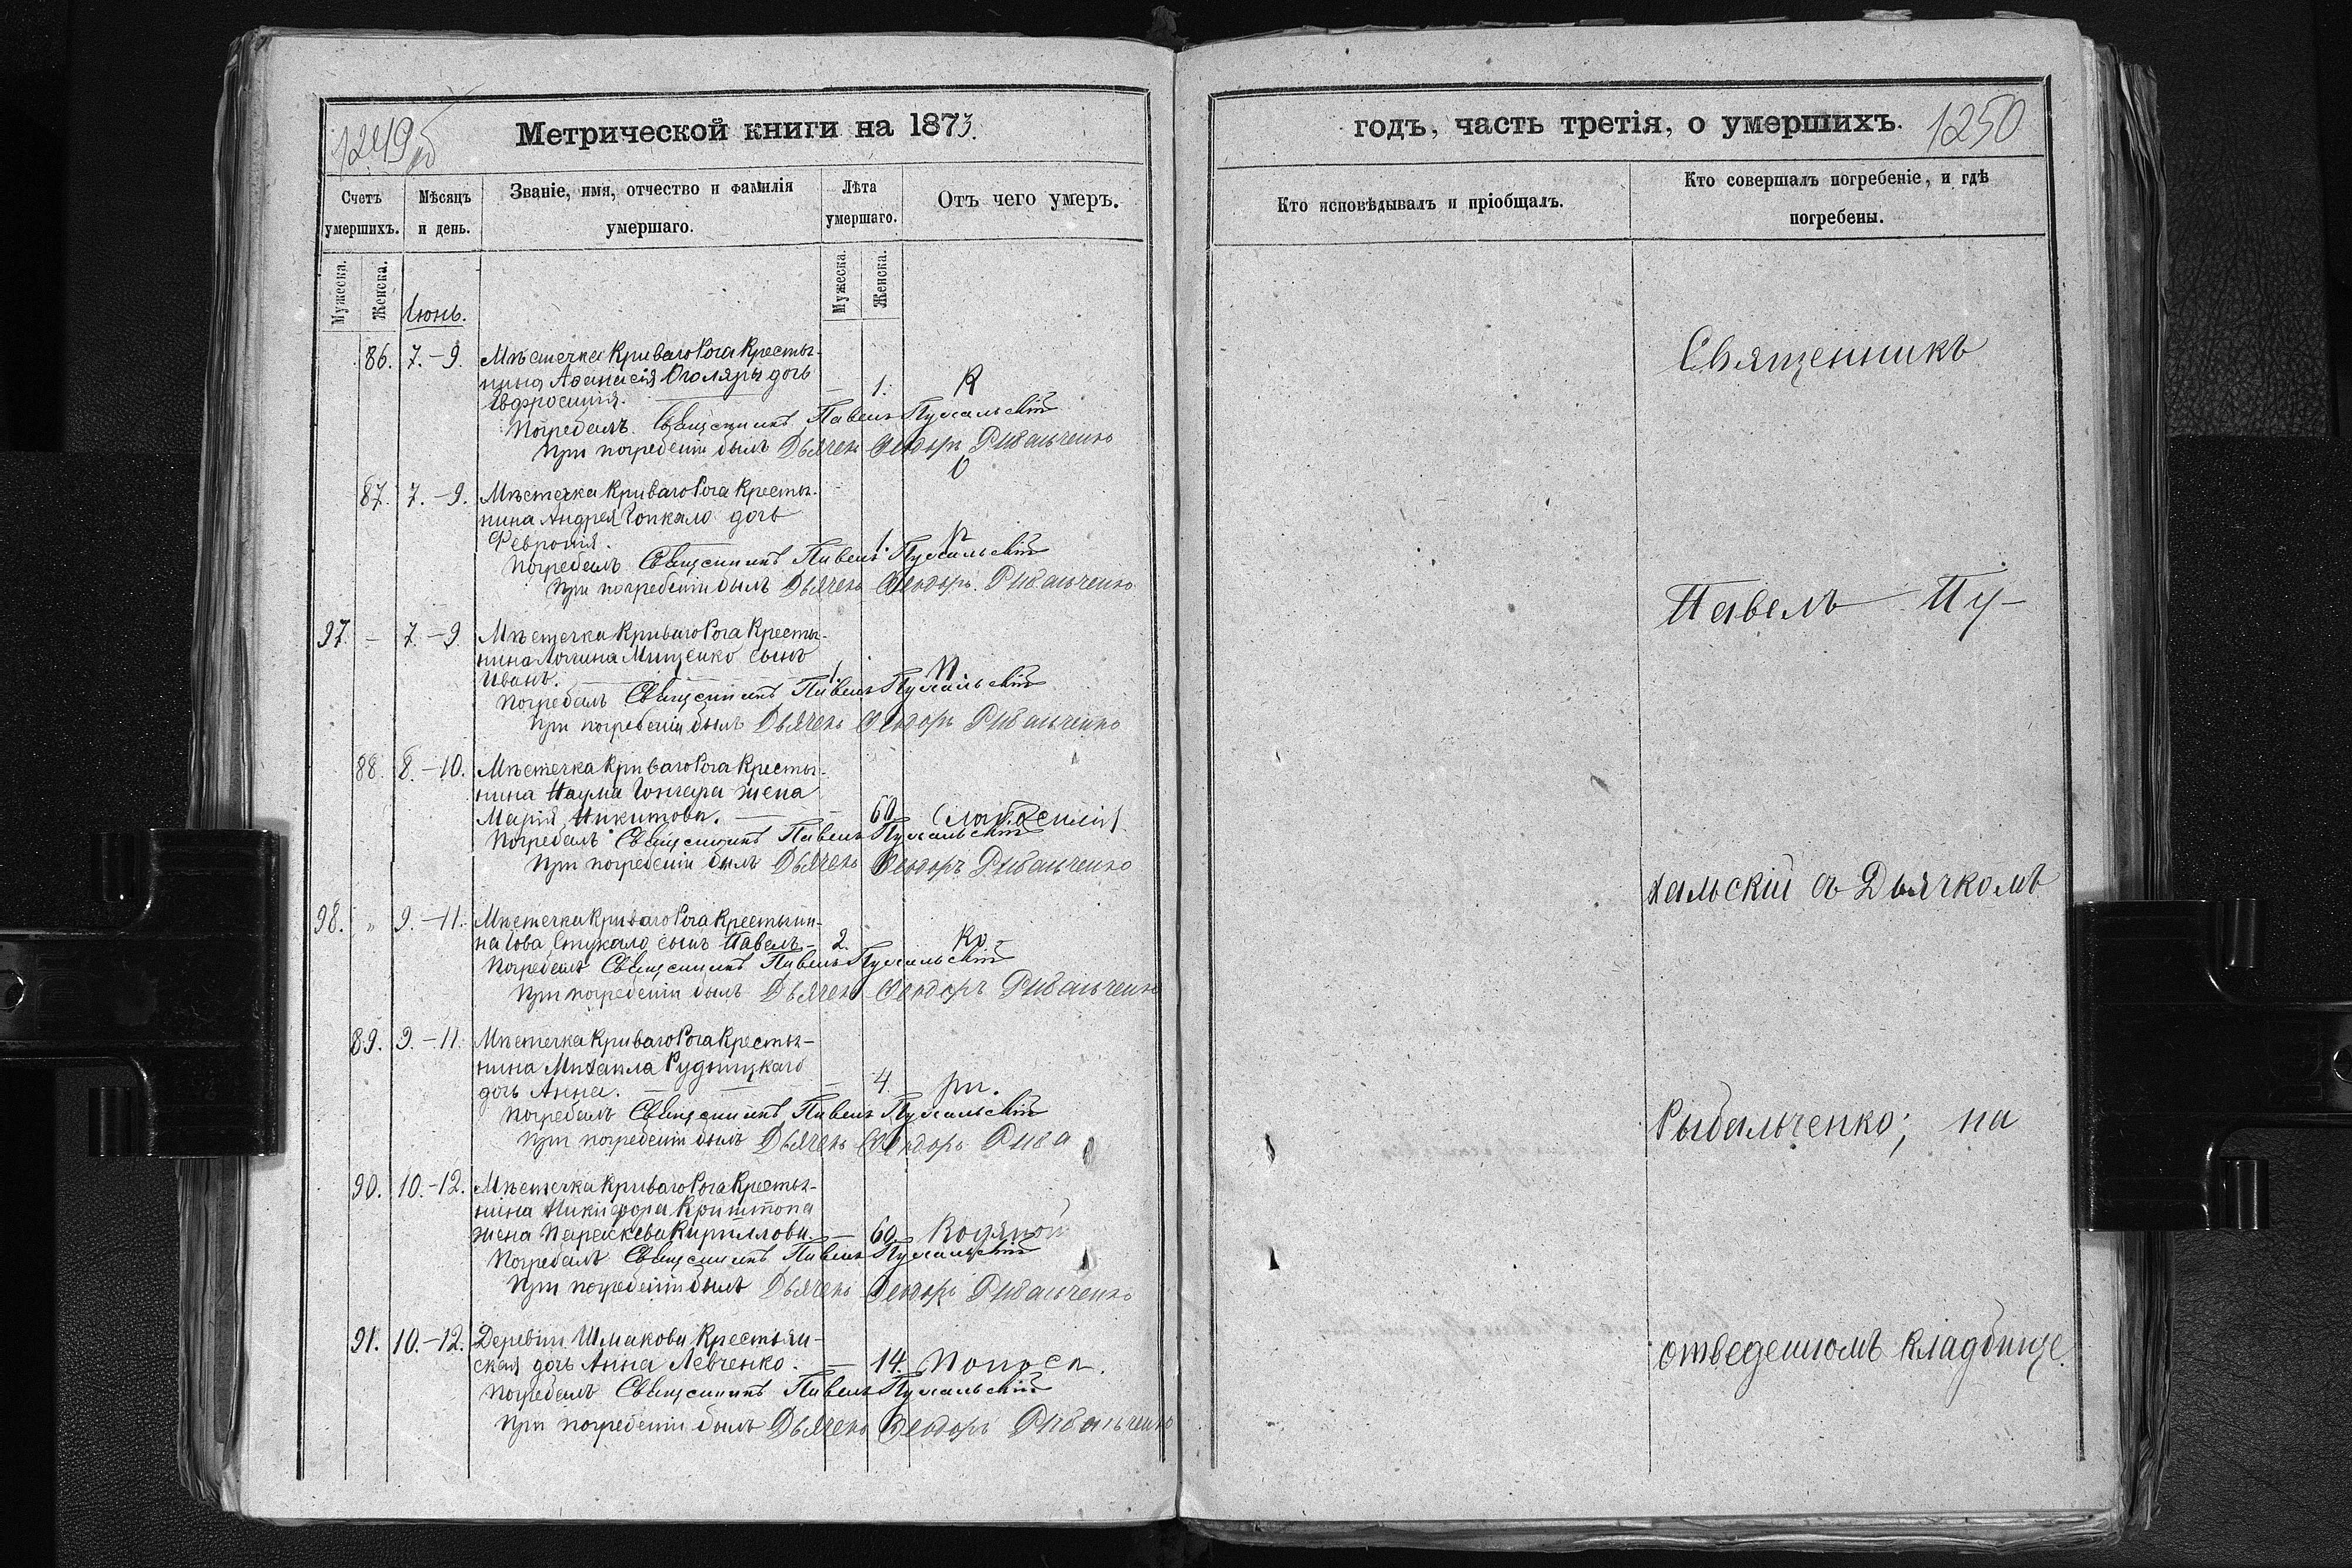 1249об
Метрической книги на 1873.
Счетъ умершихъ.
Мѣсяцъ и день.
Званіе, имя, отчество и фамилія умершаго.
Лѣта умершаго.
Отъ чего умеръ.
Мужеска.
Женска.
Мужеска.
Женска.
Іюнь.
86. 7.-9. Мѣстечка Криваго Рога Кресть-
янина Аѳанасія Столяра дочь
Евфросинія. — 1.
Погребалъ Священникъ Павелъ Пухальскій
При погребеніи былъ Дьячекъ Ѳеодоръ Рибальченко
87. 7.-9. Мѣстечка Криваго Рога Кресты-
нина Андрея Гопкало дочь
Февронія. 1.
Погребалъ Священникъ Павелъ Пухальскій
При погребеніи былъ Дьячекъ Ѳеодоръ Рибальченко
97. - 7.-9 Мѣстечка Криваго Рога Кресты-
нина Логгина Мищенко сынъ
Иванъ. 1.
Погребалъ Священникъ Павелъ Пухальскій
При погребеніи былъ Дьячекъ Ѳеодоръ Рибальченко
88. 8.-10. Мѣстечка Криваго Рога Кресты-
нина Наума Гончара жена
Марія Никитова. — 60
Погребалъ Священникъ Павелъ Пухальскій
При погребеніи былъ Дьячекъ Ѳеодоръ Рибальченко
98. „ 9.-11. Мѣстечка Криваго Рога Крестьяни-
на Іова Стукало сынъ Павелъ - 2.
Погребалъ Священникъ Павелъ Пухальскій
При погребеніи былъ Дьячекъ Ѳеодоръ Рибальченко
89. 9.-11. Мѣстечка Криваго Рога Кресты-
нина Михаила Рудницкаго
дочь Анна. — 4.
Погребалъ Священникъ Павелъ Пухальскій
При погребеніи былъ Дьячекъ Ѳеодоръ Риба
90. 10.-12. Мѣстечка Криваго Рога Кресты-
нина Никифора Криштопа
жена Параскева Кириллова. — 60 Водяной
Погребалъ Священникъ Павелъ Пухальскій
При погребеніи былъ Дьячекъ Ѳеодоръ Рибальченко
91. 10.-12. Деревни Шмаковой Крестьян-
ская дочь Анна Левченко. — 14. Поноса.
Погребалъ Священникъ Павелъ Пухальскій
При погребеніи былъ Дьячекъ Ѳеодоръ Рибальченко
годъ, часть третія, о умершихъ.
1250
Кто исповѣдывалъ и пріобщалъ.
Кто совершалъ погребеніе, и гдѣ
погребены.
Священникъ
Павелъ Пу-
хальскій съ Дьячкомъ
Рыбальченко; на
отведенномъ кладбище.